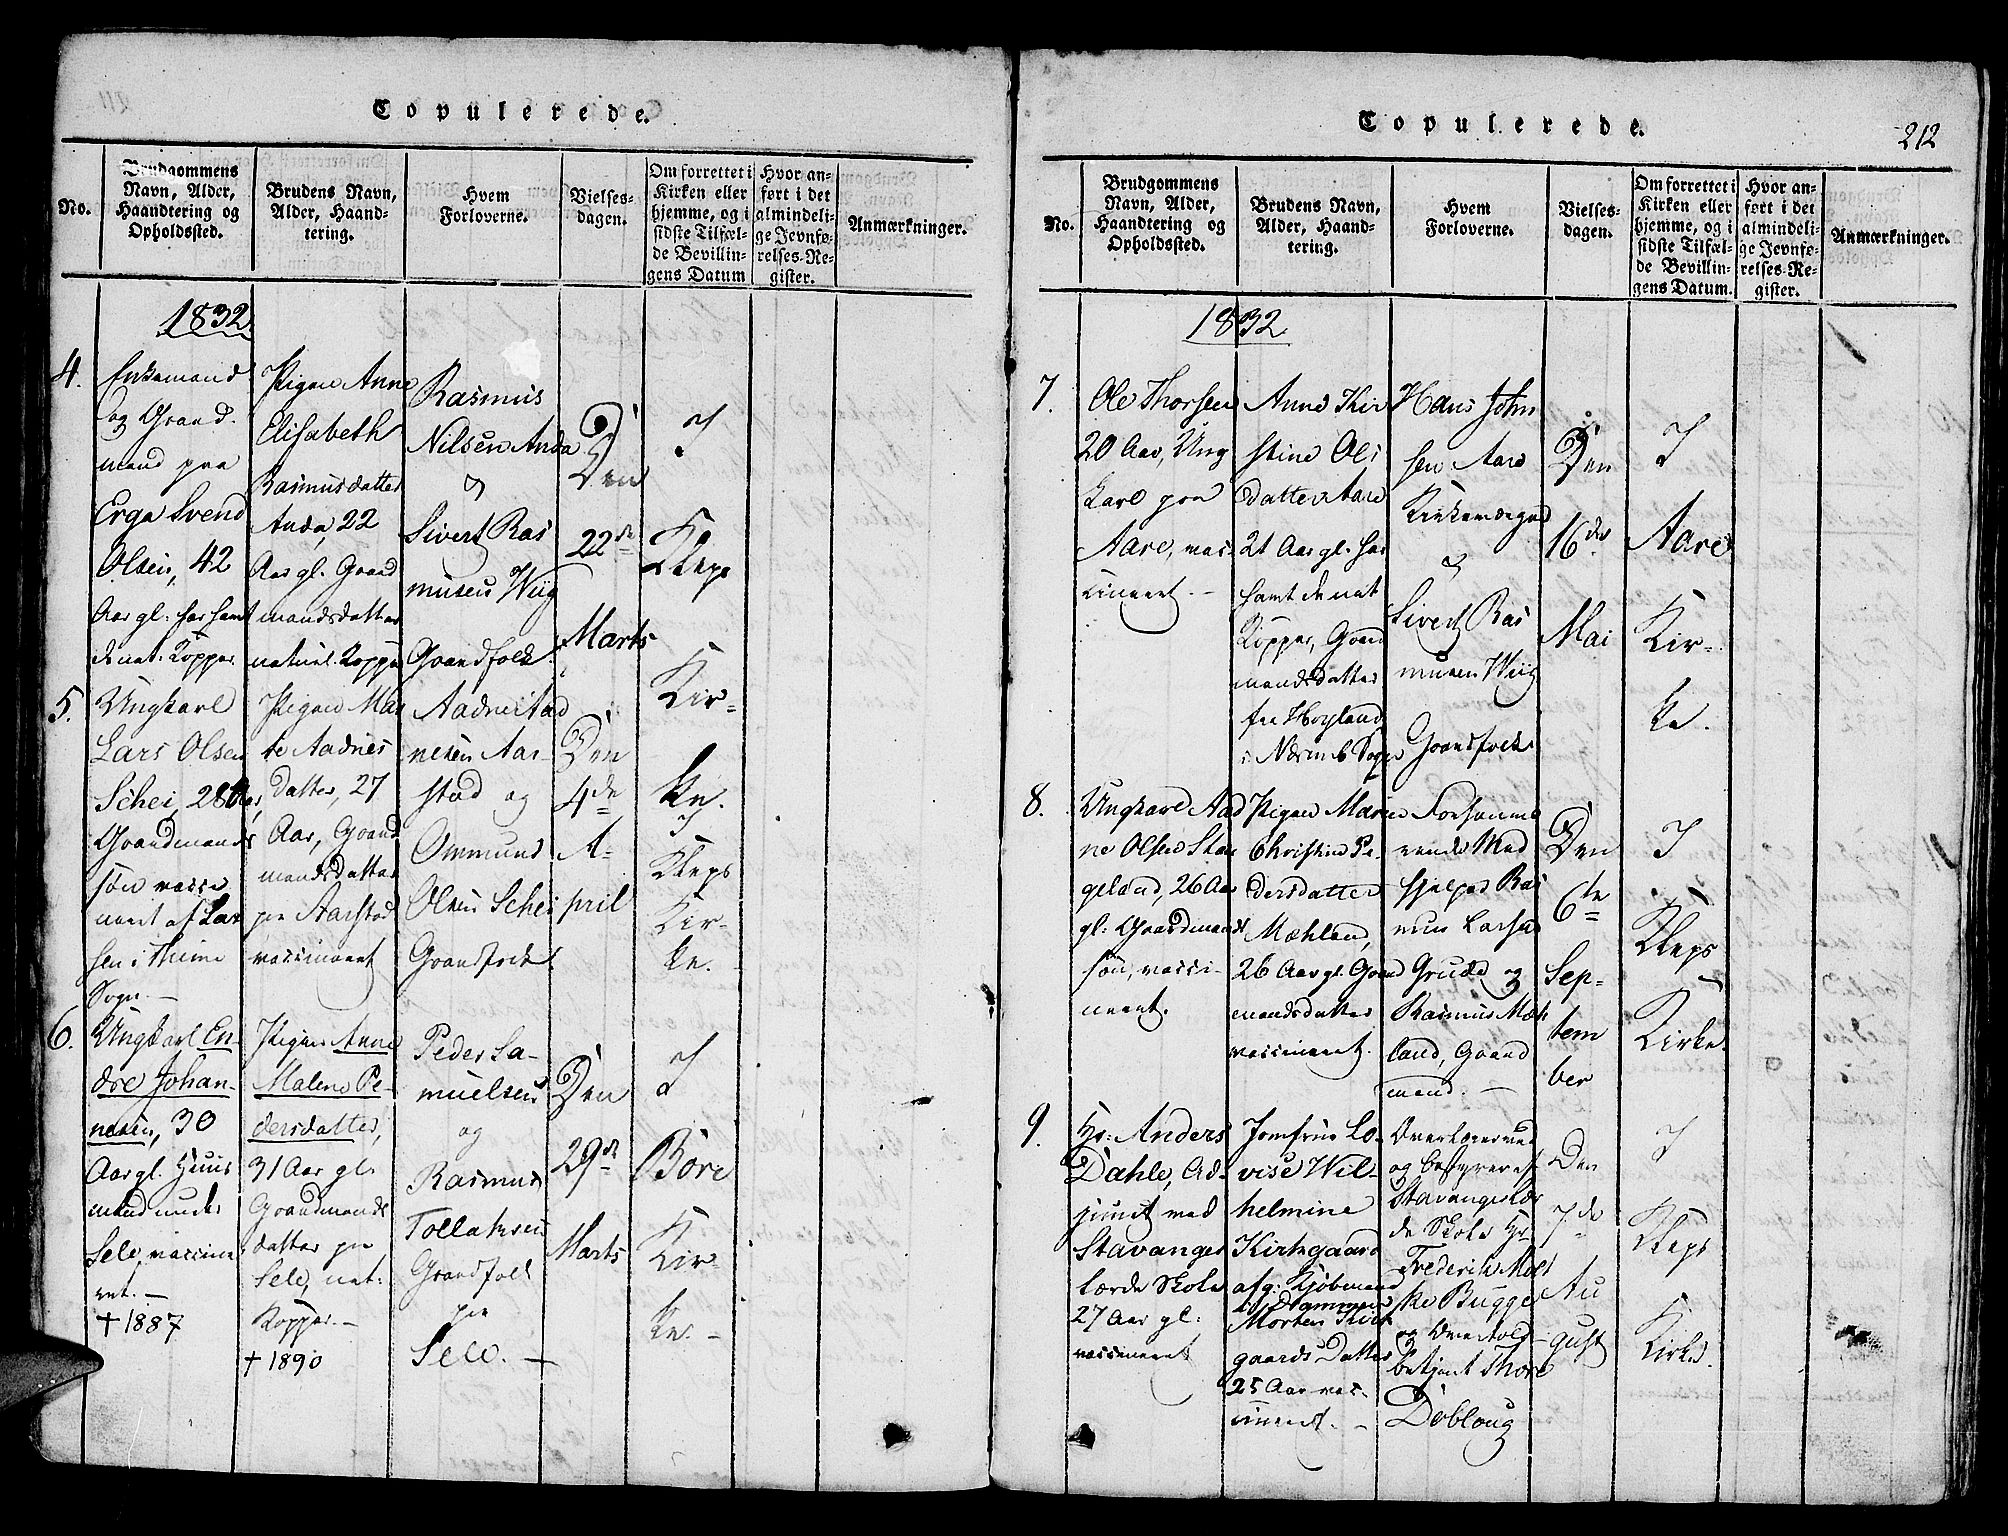 Copulerede.
No.
Brudgommens
Navn, Alder,
Haandtering og
Opholdssted.
Brudens Navn,
Alder, Haand-
tering.
Hvem
Forloverne.
Vielses-
dagen.
Om forrettet i
Kirken eller
hjemme, og i
sidste Tilfæl-
de Bevillin-
gens Datum
Hvor an-
ført i det
almindeli-
ge Jevnfø-
relses-Re-
gister.
Anmærkninger.
1832.
4.
Enkemand
og Gaard-
mand paa
Erga Svend
Olsen, 42
Aar gl. har havt
de nat: Kopper.
Pigen Anne
Elisabeth
Rasmusdatter
Anda, 22
Aar gl. Gaard
mandsdatter
naturl. Kopper
Rasmus
Nilsen Anda
og
Sivert Ras
musen Wiig
Gaardfolk.
Den
22de
Marts
I
Kleps
Kir-
ke.
5.
Ungkarl
Lars Olsen
Schei, 28 Aar,
Gaardmands
søn vacci
neert af Lar
sen i Thime
Sogn. —
Pigen Mar
te Aadnes
datter, 27
Aar, Gaard
mandsdatter
paa Aarstad
vaccineert
Aadne Tad
nesen Aar-
stad og
Ommund
Olsen Schei
Gaardfolk.
Den
4de
A-
pril
I
Kleps
Kir-
ke.
6.
Ungkarl En-
dre Johan-
nesen, 30
Aar gl. Huus
mand under
Sele, vaccine
ret. —
+ 1887
Pigen Anne
Malene Pe-
dersdatter,
31 Aar gl.
Gaardmands
datter paa
Sele, nat:
Kopper. —
+ 1890
Peder Sa-
muelsen
og
Rasmus
Tollaksen
Gaardfolk
paa
Sele. —
Den
29de
Marts
I
Bore
Kir-
ke. —
Copulerede.
212
No.
Brudgommens
Navn, Alder,
Haandtering og
Opholdssted.
Brudens Navn,
Alder, Haand-
tering.
Hvem
Forloverne.
Vielses-
dagen.
Om forrettet i
Kirken eller
hjemme, og i
sidste Tilfæl-
de Bevillin-
gens Datum.
Hvor an-
ført i det
almindeli-
ge Jevnfø-
relses-Re-
gister.
Anmærkninger.
1832
7.
Ole Thorsen
20 Aar, Ung
karl paa
Aare, vac-
cineert. —
Anne Kir
stine Ols
datter Aare
21 Aar gl. har
havt de nat
Kopper, Gaard
mandsdatter
fra Høyland
i Nærimb Sogn
Hans John
sen Aare
Kirkeværge
og
Sivert Ras
musen Wiig
Gaardfolk
Den
16de
Mai
I
Aare
Kir-
ke.
8.
Ungkarl Aad
ne Olsen Stan
geland, 26 Aar
gl: Gaardmands
søn, vacci-
neert.
Pigen Maren
Christine Pe-
dersdatter
Mæhland,
26 Aar gl. Gaard
mandsdatter
vaccineert.
Forhenvæ
rende Med
hjelper Ras
mus Larsen
Grude og
Rasmus Mæh
land, Gaard
mænd. —
Den
6te
Sep-
tem
ber
I
Kleps
Kirke.
9.
Hr: Anders
Dahle, Ad-
junct ved
Stavanger
lærde Skole
27 Aar gl:
vaccineert
Jomfrue Lo-
vise Wil-
helmine
Kirkgaard
afg: Kjøbmand
i Drammen
Morten Kirk
gaards Datter
25 Aar vac-
cineert. —
Overlærer ved
og bestyrer af
Stavanger lær
de Skole Hr
Frederik Molt
ke Bugge
og Overtold-
betjent Thore
Dobloug
Den
7de
Au
gust
I
Kleps
Kirke.